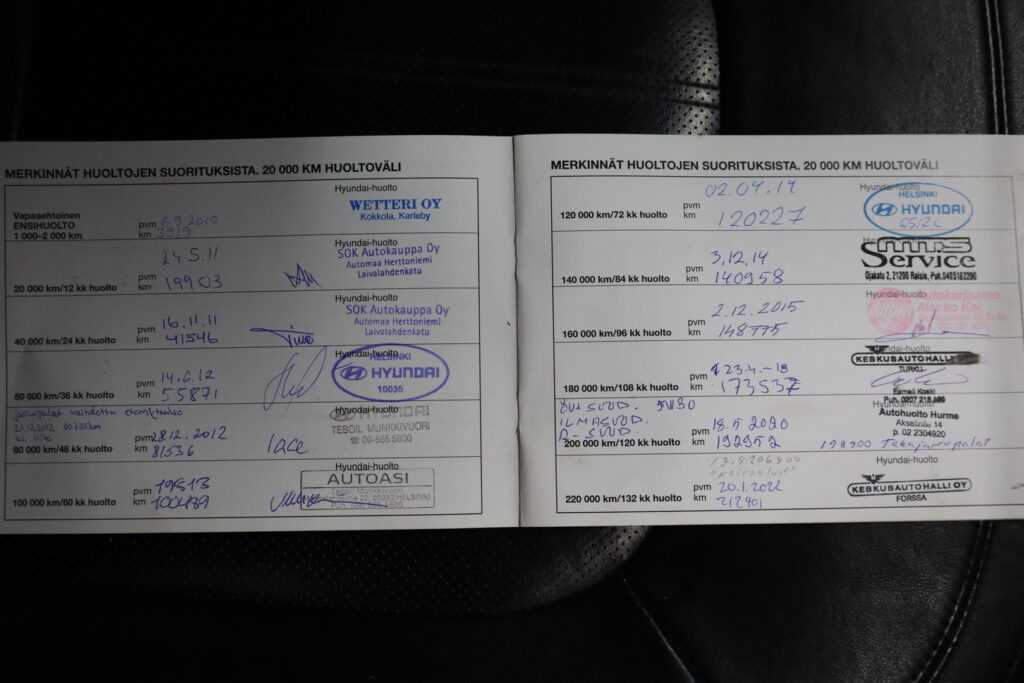 MERKINNÄT HUOLTOJEN SUORITUKSISTA. 20 000 KM HUOLTOVÄLI
Vapaaehtoinen
ENSIHUOLTO
1 000–2 000 km
pvm 6.9.2010
km 3919
Hyundai-huolto
WETTERI OY
Kokkola, Karleby
20 000 km/12 kk huolto
24.5.11
pvm
km 19903
Hyundai-huolto
SOK Autokauppa Oy
Automaa Herttoniemi
Laivalahdenkatu
40 000 km/24 kk huolto
pvm 16.11.11
km 41546
Hyundai-huolto
SOK Autokauppa Oy
Automaa Herttoniemi
Laivalahdenkatu
60 000 km/36 kk huolto
pvm 14.6.12
km 55871
Hyundai-huolto
HELSINKI
HYUNDAI
10035
jarrupalat vaihdettu
21.12.2012 80735km
80 000 km/48 kk huolto
pvm 28.12.2012
km 81536
Hyundai-huolto
HYUNDAI
TEBOIL MUNKKIVUORI
☎ 09-565 5800
100 000 km/60 kk huolto
pvm
km 100489
Hyundai-huolto
AUTOASI
Teboil Munkkivuori
22, 00350 HELSINKI
MERKINNÄT HUOLTOJEN SUORITUKSISTA. 20 000 KM HUOLTOVÄLI
120 000 km/72 kk huolto
02.04.14
pvm
km 120227
Hyundai-huolto
HELSINKI
HYUNDAI
140 000 km/84 kk huolto
pvm 3.12.14
km 140958
MTS
Service
Ojakatu 2, 21200 Raisio, Puh.0405182290
160 000 km/96 kk huolto
2.12.2015
pvm
km 148775
Hyundai-huolto
Autokorjaamo
Alanko Kai
180 000 km/108 kk huolto
pvm 23.4.-18
km 173537
Hyundai-huolto
KESKUSAUTOHALLI
TURKU
Eemeli Koski
ÖLJ+SUOD. 5W30
ILMASUOD.
R-SUOD.
200 000 km/120 kk huolto
pvm 18.5 2020
km 192952
Autohuolto Hurme
Akselintie 14
p. 02 2304920
198900 Takajarrupalat
220 000 km/132 kk huolto
pvm 20.1.2022
km 212401
Hyundai-huolto
KESKUSAUTOHALLI OY
FORSSA